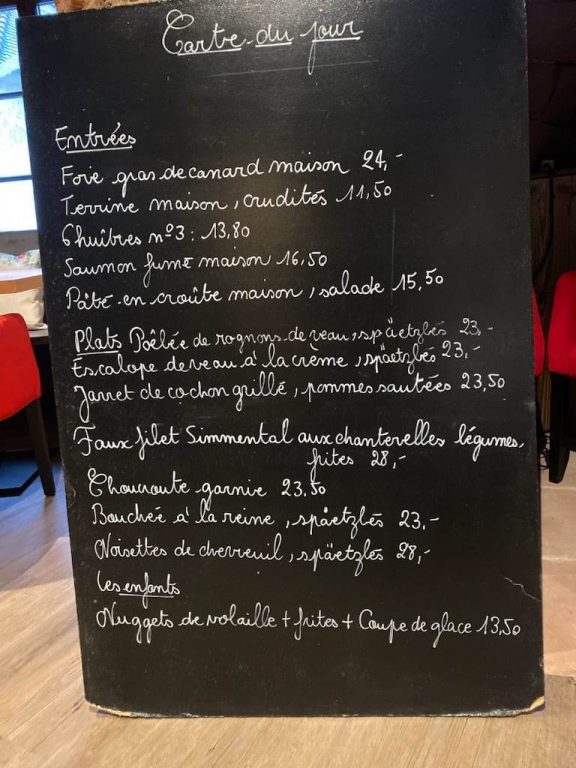 Carte du jour
Entrées
Foie gras de canard maison 24,-
Terrine maison, crudités 11,50
6 huîtres n°3 : 13,80
Saumon fumé maison 16,50
Pâté en croûte maison, salade 15,50
Plats Poêlée de rognons de veau, späetzlés 23,-
Escalope de veau à la crème, späetzlés 23,-
Jarret de cochon grillé, pommes sautées 23,50
Faux filet Simmental aux chanterelles légumes,
frites 28,-
Choucroute garnie 23,50
Bouchée à la reine, späetzlés 23,-
Noisettes de chevreuil, späetzlés 28,-
Les enfants
Nuggets de volaille + frites + Coupe de glace 13,50